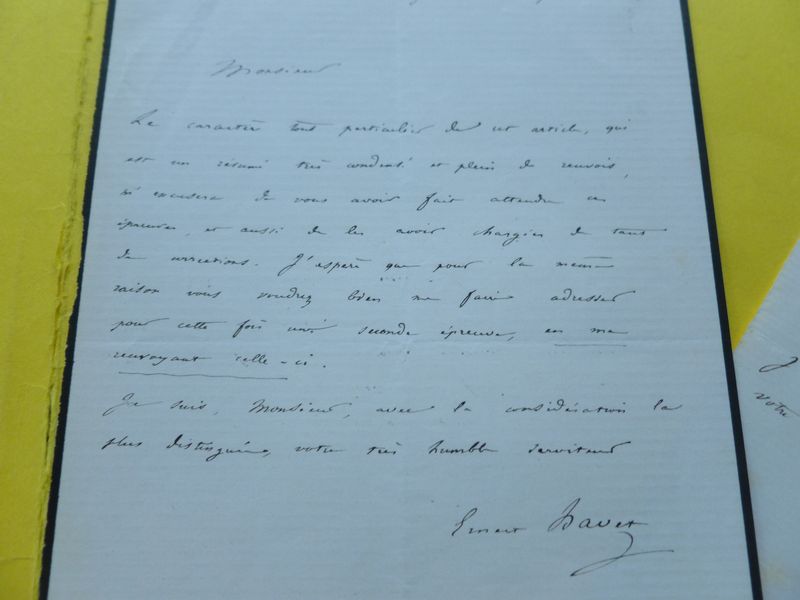 Monsieur
Le caractère tout particulier de cet article, qui
est un résumé très condensé et plein de renvois,
m'excusera de vous avoir fait attendre ces
épreuves, et aussi de les avoir chargées de tant
de corrections. J'espère que pour la même
raison vous voudrez bien me faire adresser
pour cette fois une seconde épreuve, en me
renvoyant celle-ci.
Je suis, Monsieur, avec la considération la
plus distinguée, votre très humble serviteur
Ernest Havet
votre